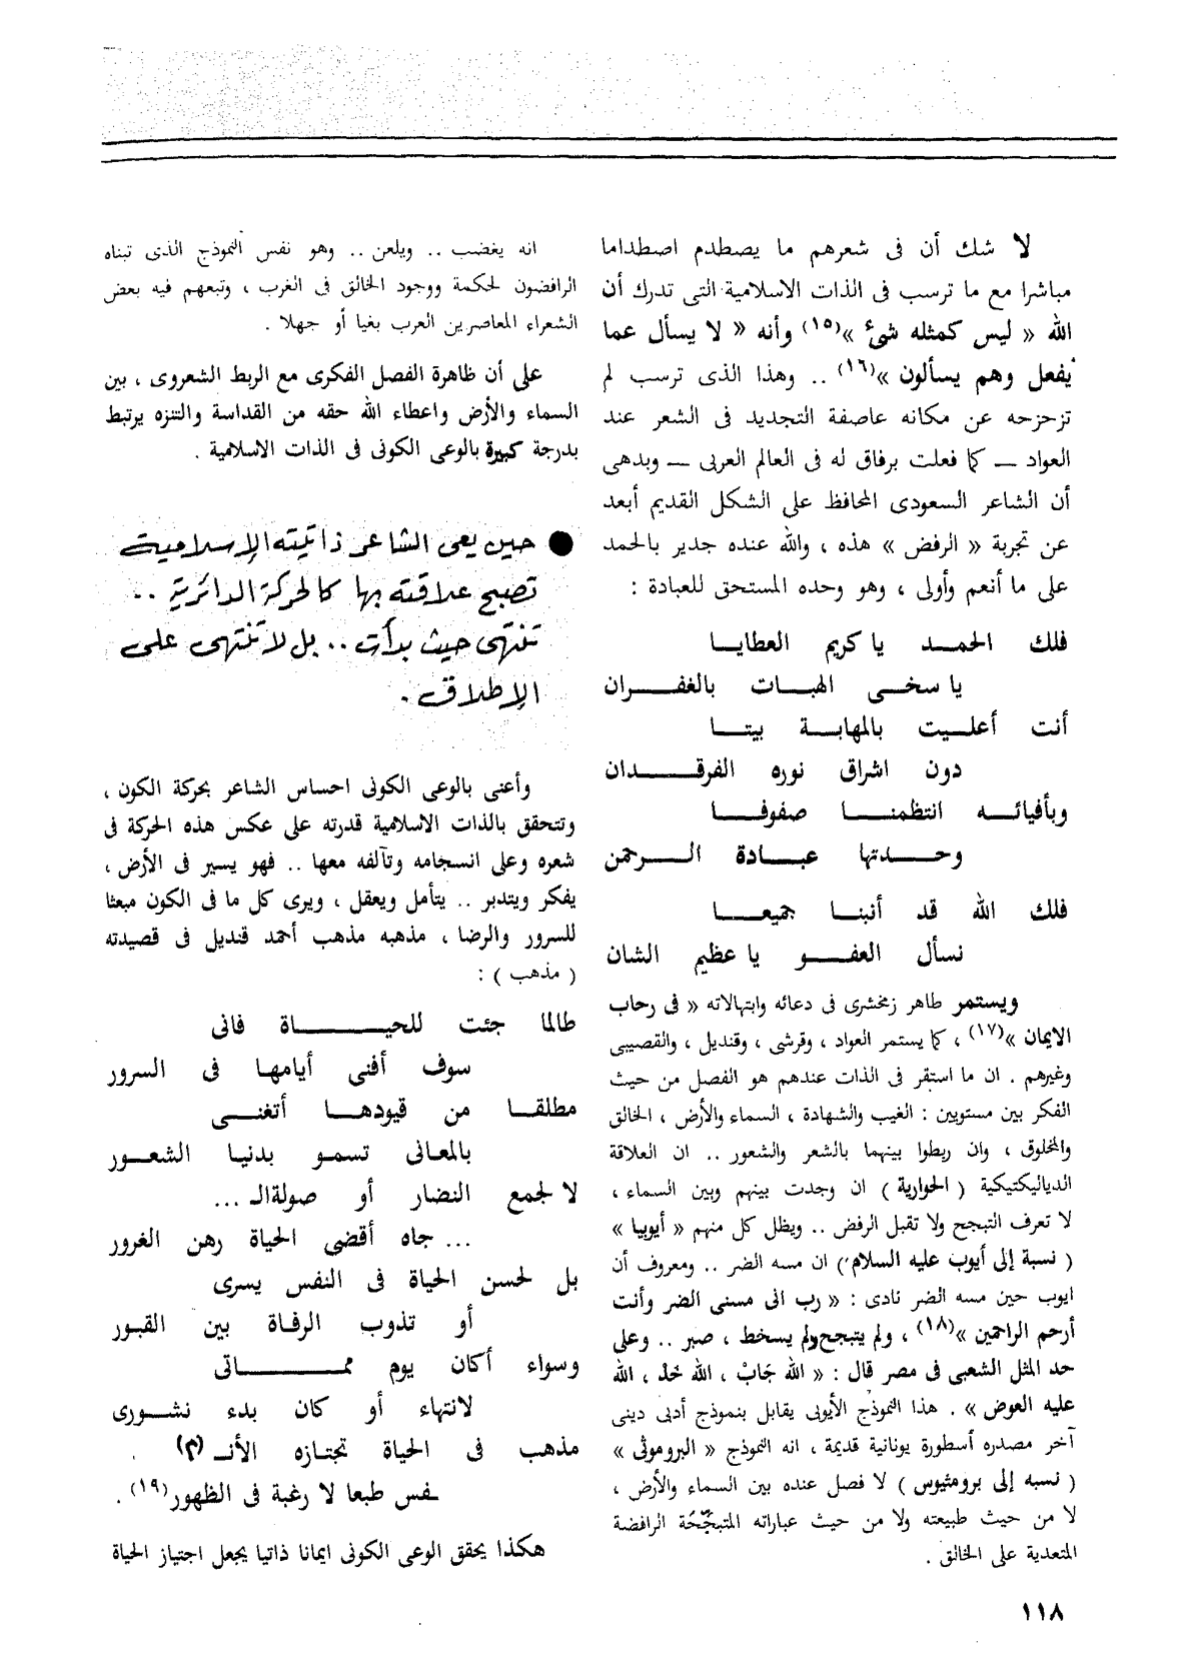 لا شك أن فى شعرهم ما يصطدم اصطداما
مباشرا مع ما ترسب فى الذات الاسلامية التى تدرك أن
الله « ليس كمثله شئ »(١٥) وأنه « لا يسأل عما
يفعل وهم يسألون »(١٦) .. وهذا الذى ترسب لم
تزحزحه عن مكانه عاصفة التجديد فى الشعر عند
العواد ــ كما فعلت برفاق له فى العالم العربى ــ وبدهى
أن الشاعر السعودى المحافظ على الشكل القديم أبعد
عن تجربة « الرفض » هذه ، والله عنده جدير بالحمد
على ما أنعم وأولى ، وهو وحده المستحق للعبادة :
فلك الحمــد يا كريم العطايــا
يا سخــى الهبــات بالغفــران
أنت أعلــيت بالمهابــة بيتــا
دون اشراق نوره الفرقــدان
وبأفيائــه انتظمنــا صفوفــا
وحــدتها عبــادة الــرحمن
فلك الله قد أنبنــا جميعــا
نسأل العفــو يا عظيم الشان
ويستمر طاهر زمخشرى فى دعائه وابتهالاته « فى رحاب
الايمان »(١٧) ، كما يستمر العواد ، وقرشى ، وقنديل ، والقصيبى
وغيرهم . ان ما استقر فى الذات عندهم هو الفصل من حيث
الفكر بين مستويين : الغيب والشهادة ، السماء والأرض ، الخالق
والمخلوق ، وان ربطوا بينهما بالشعر والشعور .. ان العلاقة
الدياليكتيكية ( الحوارية ) ان وجدت بينهم وبين السماء ،
لا تعرف التبجح ولا تقبل الرفض .. ويظل كل منهم « أيوبيا »
( نسبة إلى أيوب عليه السلام ) ان مسه الضر .. ومعروف أن
ايوب حين مسه الضر نادى : « رب انى مسنى الضر وأنت
أرحم الراحمين »(١٨) ، ولم يتبجح ولم يسخط ، صبر .. وعلى
حد المثل الشعبى فى مصر قال : « الله جَابْ ، الله خَدْ ، الله
عليه العوض » . هذا النموذج الأيوبى يقابل بنموذج أدبى دينى
آخر مصدره أسطورة يونانية قديمة ، انه النموذج « البروموثى »
( نسبه إلى برومثيوس ) لا فصل عنده بين السماء والأرض ،
لا من حيث طبيعته ولا من حيث عباراته المتبجّحَة الرافضة
المتعدية على الخالق .
انه يغضب .. ويلعن .. وهو نفس النموذج الذى تبناه
الرافضون لحكمة ووجود الخالق فى الغرب ، وتبعهم فيه بعض
الشعراء المعاصرين العرب بغيا أو جهلا .
على أن ظاهرة الفصل الفكرى مع الربط الشعروى ، بين
السماء والأرض واعطاء الله حقه من القداسة والتنزه يرتبط
بدرجة كبيرة بالوعى الكونى فى الذات الاسلامية .
● حين يعى الشاعر ذاتيته الإسلامية
تصبح علاقته بها كالحركة الدائرية ..
تنتهى حيث بدأت .. بل لا تنتهى على
الإطلاق .
وأعنى بالوعى الكونى احساس الشاعر بحركة الكون ،
وتتحقق بالذات الاسلامية قدرته على عكس هذه الحركة فى
شعره وعلى انسجامه وتآلفه معها .. فهو يسير فى الأرض ،
يفكر ويتدبر .. يتأمل ويعقل ، ويرى كل ما فى الكون مبعثا
للسرور والرضا ، مذهبه مذهب أحمد قنديل فى قصيدته
( مذهب ) :
طالما جئت للحيــاة فانى
سوف أفنى أيامهـا فى السرور
مطلقــا من قيودهــا أتغنــى
بالمعـانى تسمــو بدنيـا الشعــور
لا لجمع النضار أو صولةالـ ...
... جاه أقضى الحياة رهن الغرور
بل لحسن الحياة فى النفس يسرى
أو تذوب الرفـاة بين القبـور
وسواء أكان يوم ممــاتى
لانتهاء أو كان بدء نشــورى
مذهب فى الحياة تجتـازه الأنـ (م)
ـفس طبعا لا رغبة فى الظهور(١٩) .
هكذا يحقق الوعى الكونى ايمانا ذاتيا يجعل اجتياز الحياة
١١٨